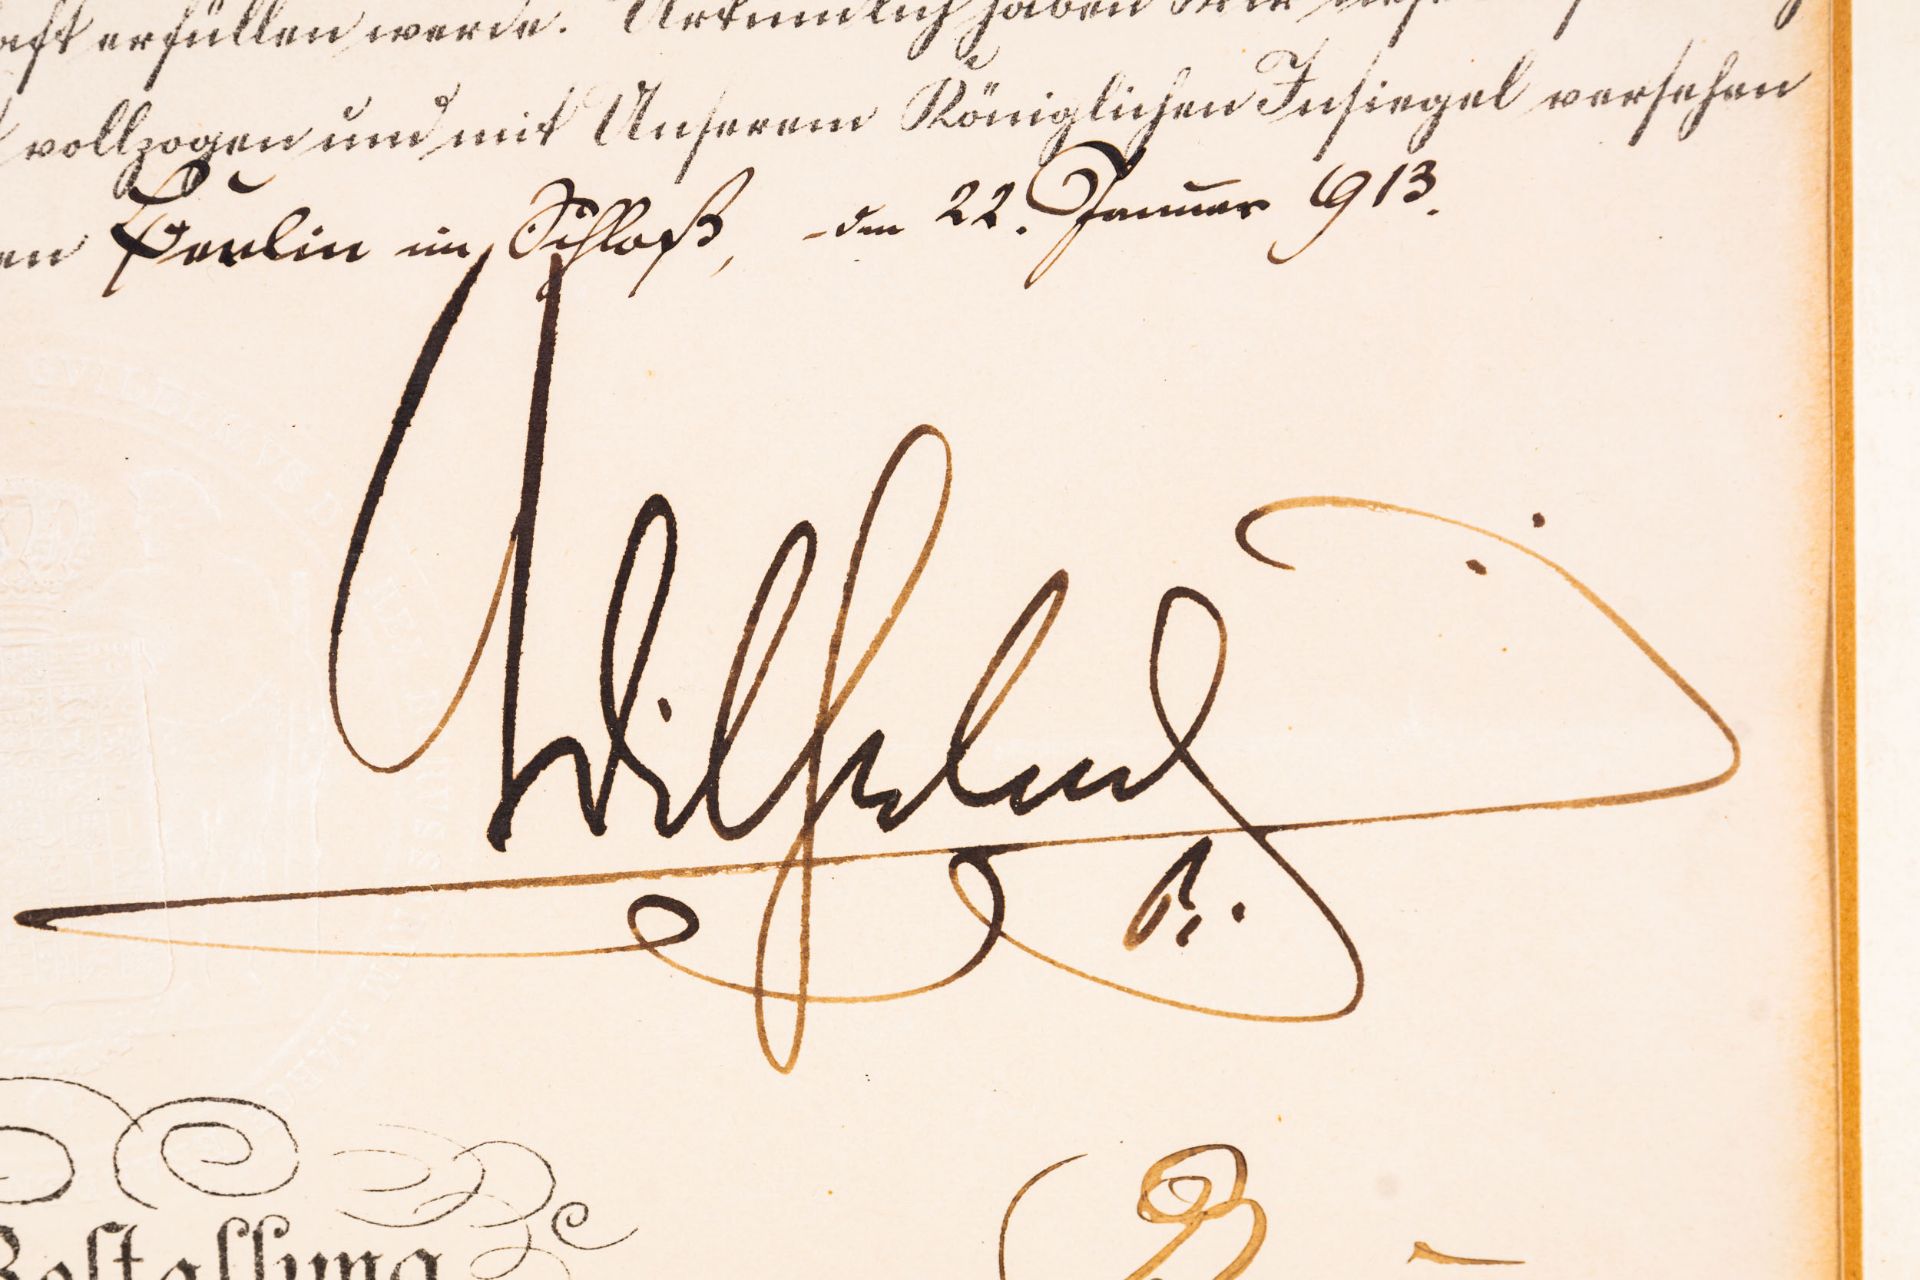 erfüllen werde. Urkundlich haben Wir
vollzogen und mit Unserem Königlichen Insiegel versehen
Berlin im Schloß, den 22. Januar 1913.
Wilhelm
R.
Bestallung